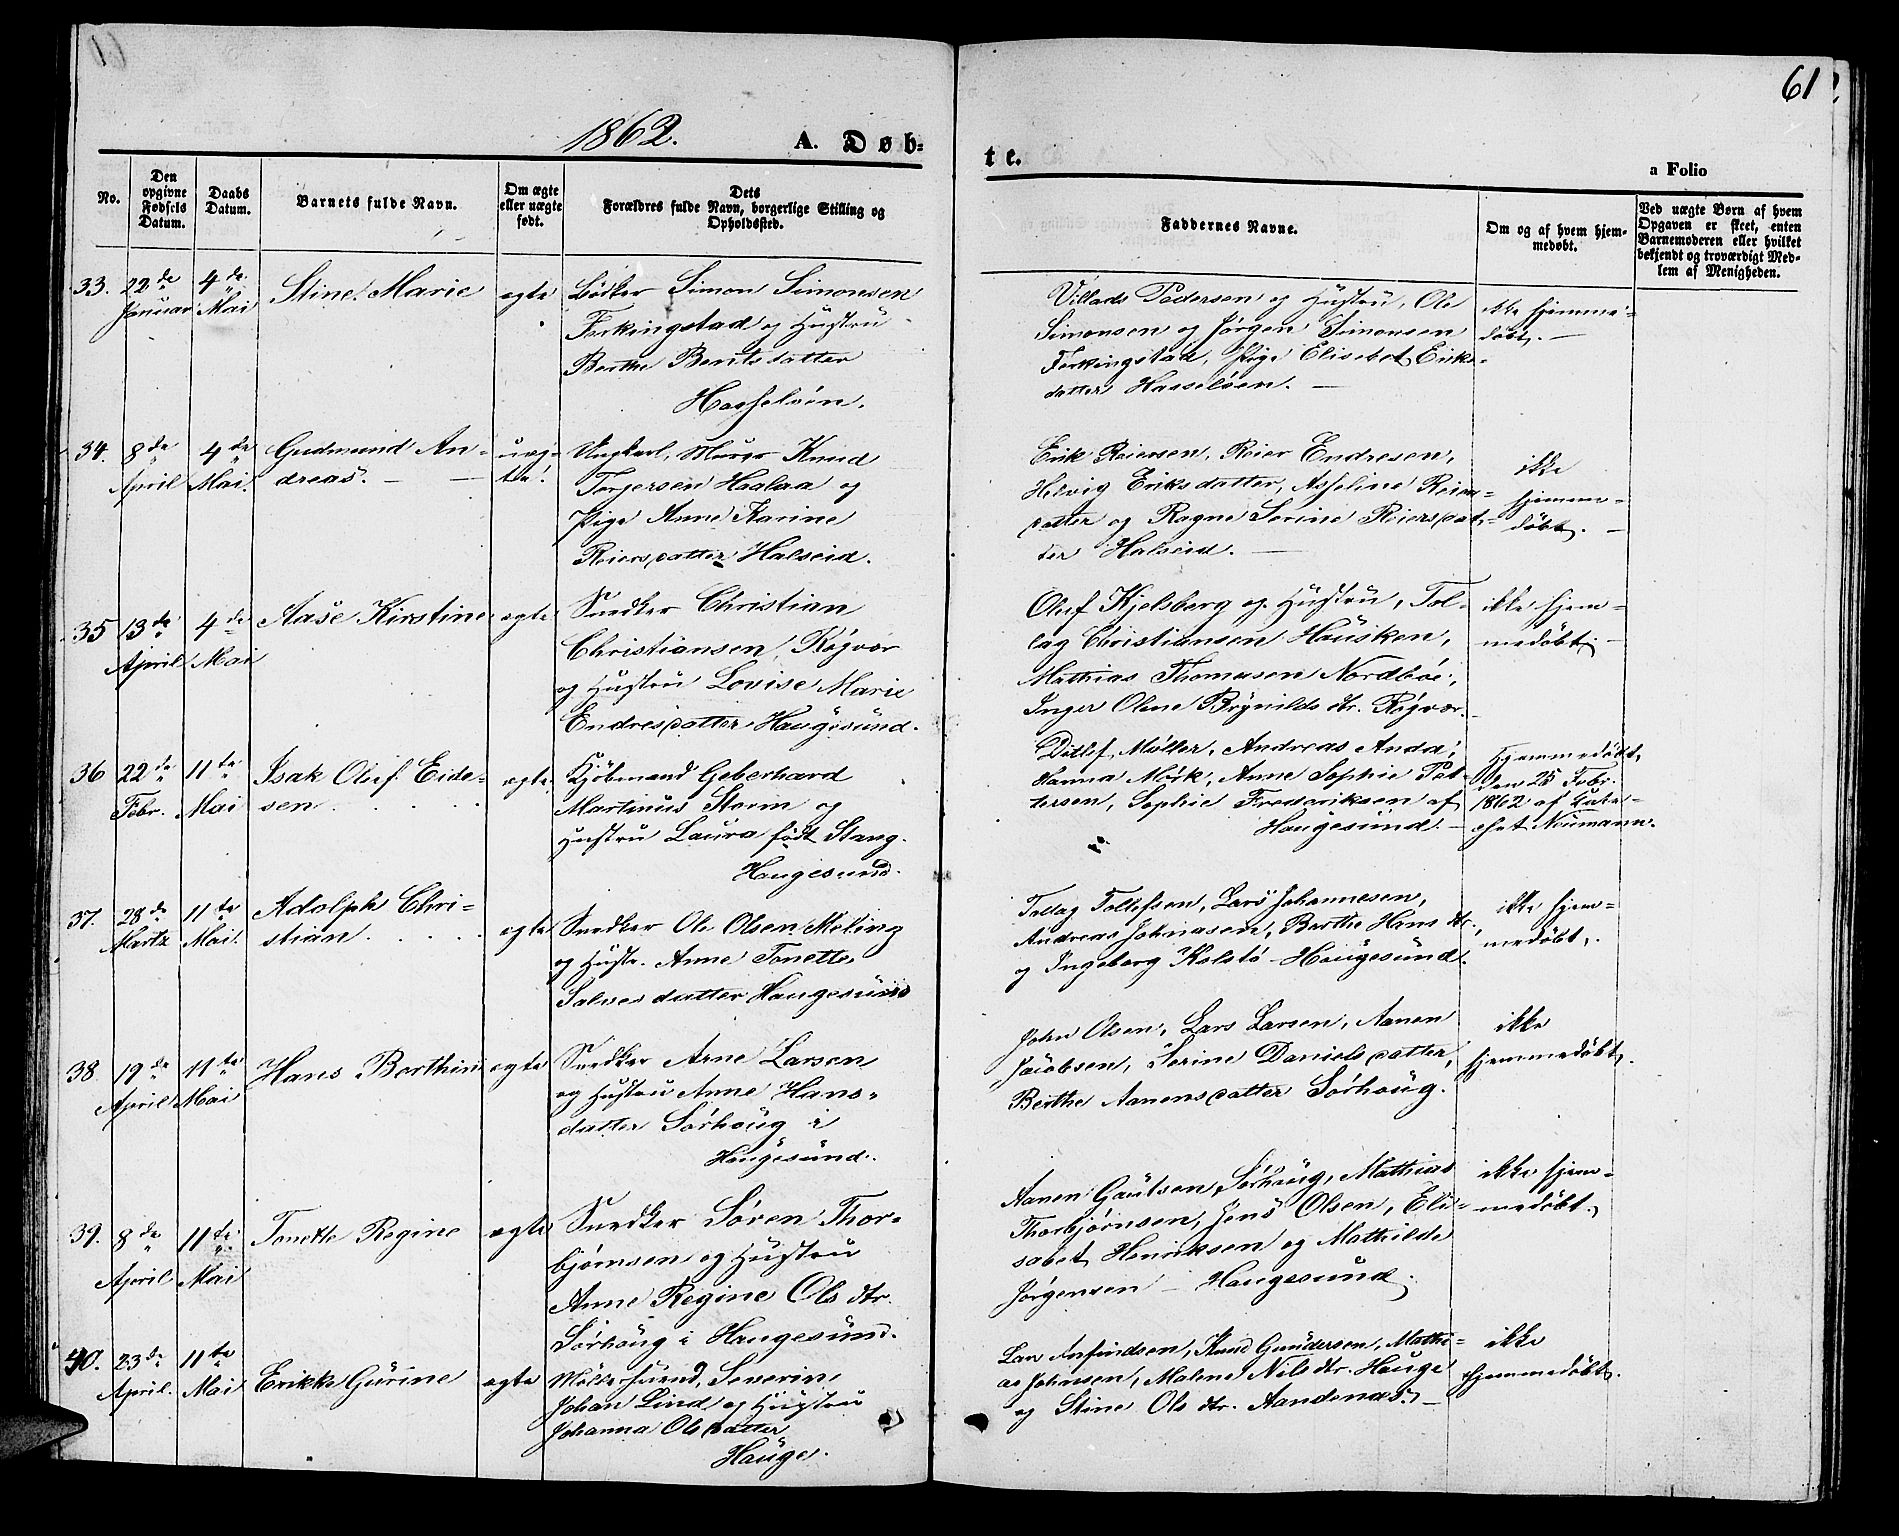 61
1862.
A. Døb=
te.
a Folio
No.
Den opgivne Fødsels Datum.
Daabs Datum.
Barnets fulde Navn.
Om ægte eller uægte født.
Dets Forældres fulde Navn, borgerlige Stilling og Opholdssted.
Faddernes Navne.
Om og af hvem hjem=
medøbt.
Ved uægte Børn af hvem
Opgaven er skeet, enten
Barnemoderen eller hvilket
bekjendt og troværdigt Med=
lem af Menigheden.
33. 22de Januar 4de Mai Stine Marie ægte
Bödker Simon Simonsen
Ferkingstad og Hustru
Berthe Bentsdatter
Hasselöen.
Villads Pedersen og Hustru, Ole
Simonsen og Jørgen Simonsen
Ferkingstad, Pige Elisebet Eriks=
datter Hasselöen. —
ikke hjemme=
döbt. —
34. 8de April 4de Mai. Gudmund An=
dreas. — uæg=
te.
Ungkarl, Murer Knud
Torjersen Haalaa og
Pige Anne Karine
Reiersdatter Halseid.
Erik Reiersen, Reier Endresen,
Helvig Eriksdatter, Asseline Reiers=
datter og Ragne Serine Reiersdat=
ter Halseid. —
ikke
hjemme=
døbt. —
35 13de April 4de Mai Aase Kirstine ægte
Snedker Christian
Christiansen Røgvær
og Hustru Lovise Marie
Endresdatter Haugesund.
Oluf Kjelsberg og Hustru, Tol=
lag Christiansen Hausken,
Mathias Thomasen Nordböe,
Inger Olene Brynilds dtr. Røgvær.
ikke hjem=
medøbt. —
36 22de Febr. 11te Mai Isak Oluf Eide=
sen . . . . ægte
Kjöbmand Geberhard
Martinus Storm og
Hustru Laura født Stang.
Haugesund.
Ditlef Møller, Andreas Anda,
Hanna Mörk, Anne Sophie Pet=
tersen, Sophie Frederiksen af
Haugesund. —
Hjemmedöbt
den 25 Febr.
1862 af Kate=
chet Neumann.
37. 28de Martz 11te Mai. Adolph Chri=
stian. . . . . ægte
Snedker Ole Olsen Meling
og Hustr. Anne Tonette
Salvesdatter Haugesund
Tollag Tollefsen, Lars Johannesen,
Andreas Johnasen, Berthe Hans dtr.,
og Ingeborg Kolstö Haugesund.
ikke hjem=
medøbt.
38. 19de April 11te Mai Hans Berthin ægte
Snedker Arne Larsen
og Hustru Anne Hans=
datter Sørhaug i
Haugesund.
John Olsen, Lars Larsen, Aanen
Jacobsen, Serine Danielsdatter,
Berthe Aanensdatter Sörhaug.
ikke
hjemmedøbt.
39. 8de April 11te Mai Tonette Regine ægte
Snedker Søren Thor=
bjørnsen og Hustru
Anne Regine Ols dtr.
Sörhaug i Haugesund.
Aanen Gautsen Sörhaug, Mathias
Thorbjørnsen, Jens Olsen, Eli=
sabet Henriksen og Mathilde
Jørgensen — Haugesund.
ikke hjem=
medøbt.
40. 23de April. 11te Mai Erikke Gurine ægte
Möllersvend, Severin
Johan Lind og Hustru
Johanna Olsdatter
Hauge.
Lars Anfindsen, Knud Gundersen, Mathi=
as Johnsen, Malene Nils dtr. Hauge
og Stine Ols dtr. Aandenaes. —
ikke
hjemmedøbt.